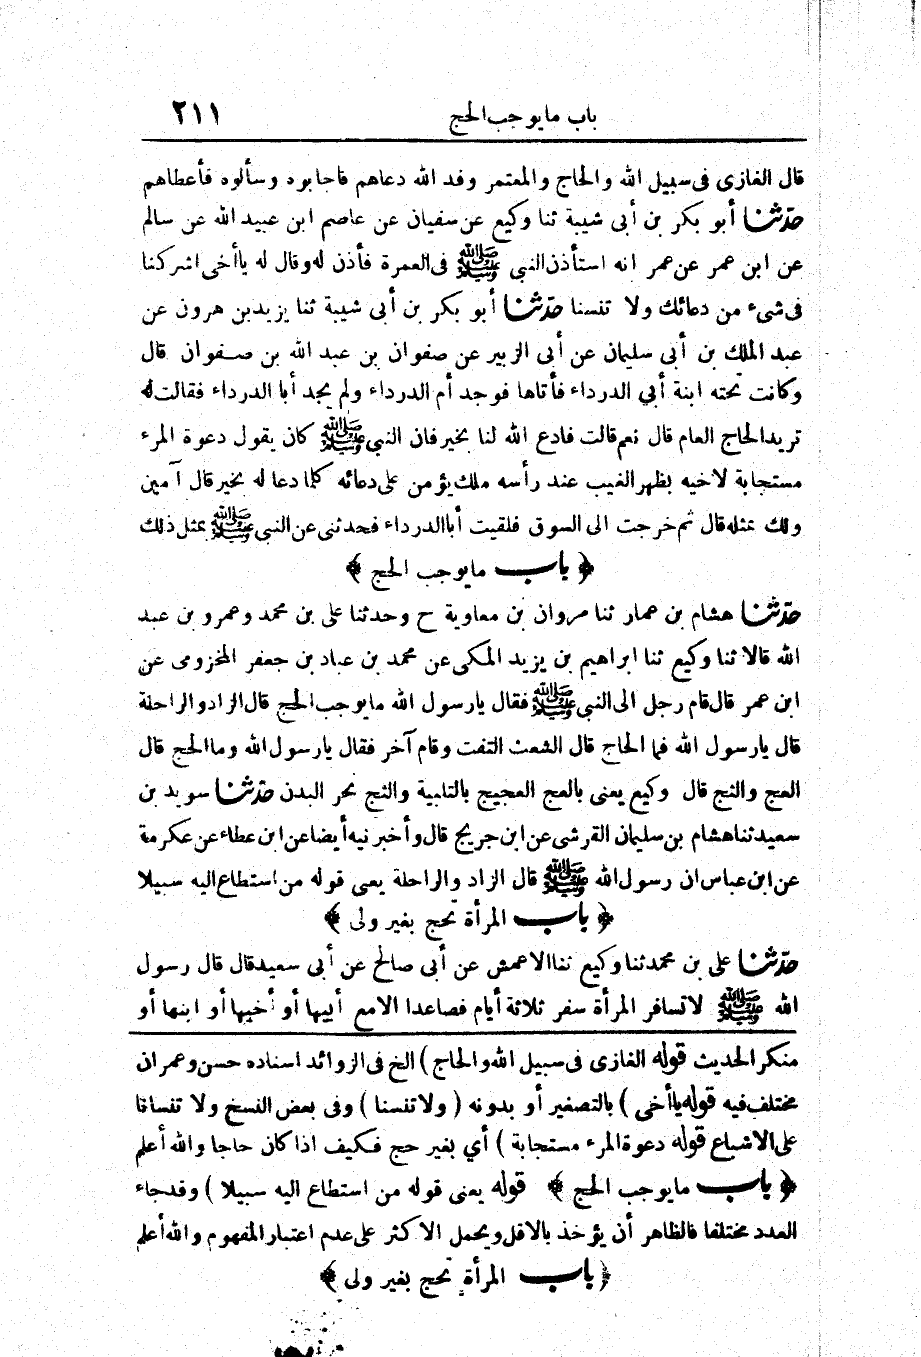 باب ما يوجب الحج ٢١١
قال الغازى فى سبيل الله والحاج والمعتمر وفد الله دعاهم فاجابوه وسألوه فأعطاهم
حدّثنا أبو بكر بن أبى شيبة ثنا وكيع عن سفيان عن عاصم ابن عبيد الله عن سالم
عن ابن عمر عن عمر انه استأذن النبى ﷺ فى العمرة فأذن له وقال له يا أخى اشركنا
فى شىء من دعائك ولا تنسنا حدّثنا أبو بكر بن أبى شيبة ثنا يزيد بن هرون عن
عبد الملك بن أبى سليمان عن أبى الزبير عن صفوان بن عبد الله بن صفوان قال
وكانت تحته ابنة أبي الدرداء فأتاها فوجد أم الدرداء ولم يجد أبا الدرداء فقالت له
تريد الحاج العام قال نعم قالت فادع الله لنا بخير فان النبى ﷺ كان يقول دعوة المرء
مستجابة لاخيه بظهر الغيب عند رأسه ملك يؤمن على دعائه كلما دعا له بخير قال آمين
ولك بمثله قال ثم خرجت الى السوق فلقيت أبا الدرداء فحدثنى عن النبى ﷺ بمثل ذلك
﴿ باب ما يوجب الحج ﴾
حدّثنا هشام بن عمار ثنا مروان بن معاوية ح وحدثنا على بن محمد وعمرو بن عبد
الله قالا ثنا وكيع ثنا ابراهيم بن يزيد المكى عن محمد بن عباد بن جعفر المخزومى عن
ابن عمر قال قام رجل الى النبى ﷺ فقال يارسول الله ما يوجب الحج قال الزاد والراحلة
قال يارسول الله فما الحاج قال الشعث التفث وقام آخر فقال يارسول الله وما الحج قال
العج والثج قال وكيع يعنى بالعج العجيج بالتلبية والثج نحر البدن حدّثنا سويد بن
سعيد ثنا هشام بن سليمان القرشى عن ابن جريج قال وأخبرنيه أيضا عن ابن عطاء عن عكرمة
عن ابن عباس ان رسول الله ﷺ قال الزاد والراحلة يعى قوله من استطاع اليه سبيلا
﴿ باب المرأة تحج بغير ولى ﴾
حدّثنا على بن محمد ثنا وكيع ثنا الاعمش عن أبى صالح عن أبى سعيد قال قال رسول
الله ﷺ لا تسافر المرأة سفر ثلاثة أيام فصاعدا الا مع أبيها أو أخيها أو ابنها أو
منكر الحديث قوله الغازى فى سبيل الله والحاج ) الخ فى الزوائد اسناده حسن وعمران
مختلف فيه قوله يا أخى ) بالتصغير أو بدونه ( ولا تنسنا ) وفى بعض النسخ ولا تنسانا
على الاشباع قوله دعوة المرء مستجابة ) أي بغير حج فكيف اذا كان حاجا والله أعلم
﴿ باب ما يوجب الحج ﴾ قوله يعنى قوله من استطاع اليه سبيلا ) وقد جاء
العدد مختلفا فالظاهر أن يؤخذ بالاقل ويحمل الاكثر على عدم اعتبار المفهوم والله أعلم
﴿ باب المرأة تحج بغير ولى ﴾